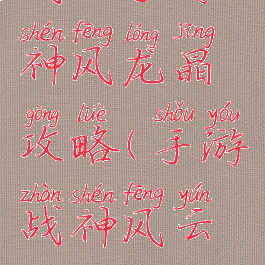 shén fēng lóng jīng
神风龙晶
gōng lüè shǒu yóu
攻略(手游
zhàn shén fēng yún
战神风云